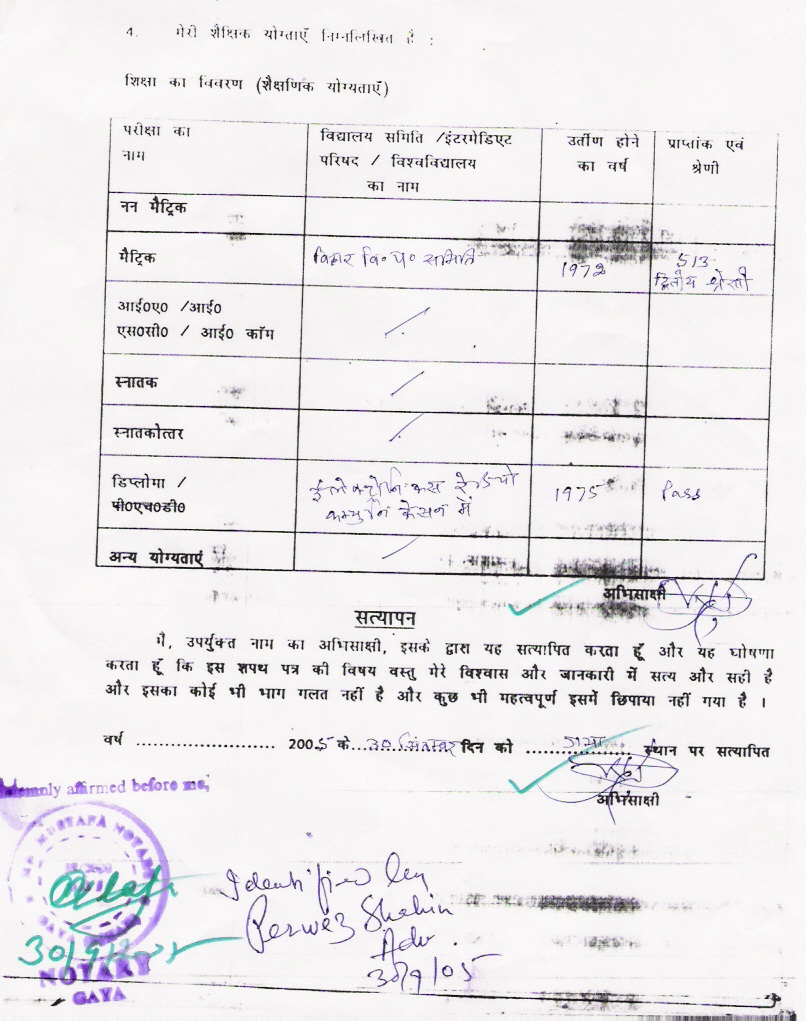 4. मेरी शैक्षिक योग्ताएँ निम्नलिखित है :
शिक्षा का विवरण (शैक्षणिक योग्यताएँ)
परीक्षा का नाम
विद्यालय समिति /इंटरमेडिएट
परिषद / विश्वविद्यालय
का नाम
उर्तीण होने
का वर्ष
प्राप्तांक एवं
श्रेणी
नन मैट्रिक
मैट्रिक बिहार वि० प० समिति 1972 513
द्वितीय श्रेणी
आई०ए० /आई०
एस०सी० / आई० कॉम
स्नातक
स्नातकोत्तर
डिप्लोमा / इलेक्ट्रोनिकस रेडियो 1975 Pass
पी०एच०डी० कम्युनिकेसन में
अन्य योग्यताएं
अभिसाक्षी
सत्यापन
मै, उपर्युक्त नाम का अभिसाक्षी, इसके द्वारा यह सत्यापित करता हूँ और यह घोषणा
करता हूँ कि इस शपथ पत्र की विषय वस्तु मेरे विश्वास और जानकारी में सत्य और सही है
और इसका कोई भी भाग गलत नहीं है और कुछ भी महत्वपूर्ण इसमें छिपाया नहीं गया है ।
वर्ष ........................ 2005 के 30 सितम्बर दिन को ................ गया स्थान पर सत्यापित
अभिसाक्षी
affirmed before me,
MUSTAFA NOTARY
30/9/2005
NOTARY
GAYA
Identified by
Perwez Shahin
Adv.
30/9/05